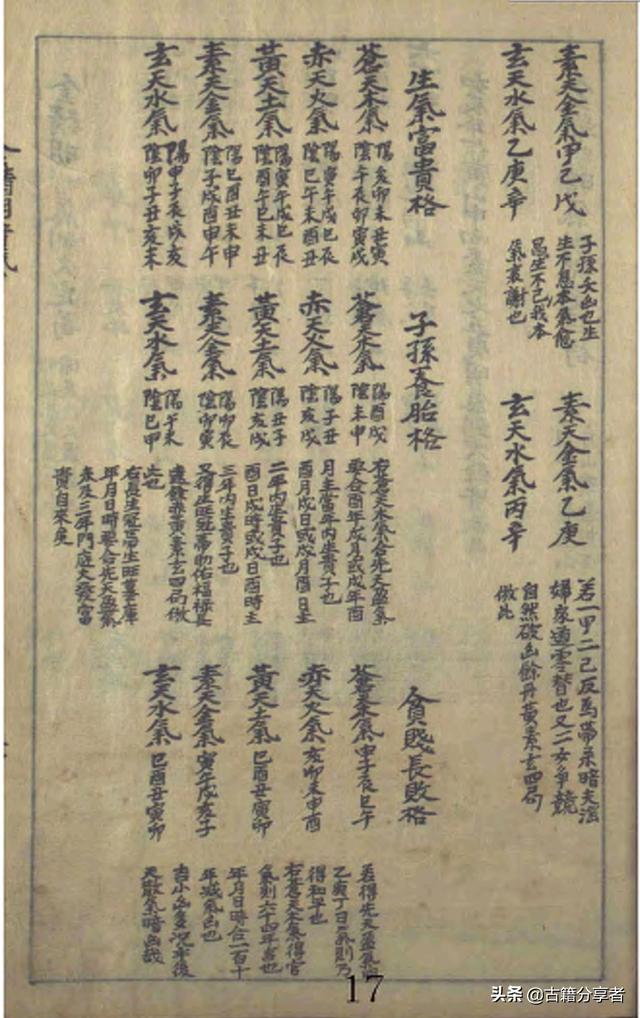 素天金氣甲己戊
玄天水氣乙庚辛
子孫大凶也生
生不息本氣愈
息生不己我本
氣衰謝也
素天金氣乙庚
玄天水氣丙辛
若一甲二己反為帶杀暗夫淫
婦家道零替也又二女爭競
自然破凶餘丹黃素玄四局
倣此
生氣富貴格
蒼天木氣
陽亥卯未丑寅
陰午辰卯寅戌
赤天火氣
陽寅午戌巳辰
陰巳午未酉丑
黃天土氣
陽寅午戌巳辰
陰酉午巳未丑
素天金氣
陽巳酉丑未申
陰子戌酉申午
玄天水氣
陽申子辰戌亥
陰卯子丑亥未
子孫養胎格
蒼天木氣
陽酉戌
陰未申
赤天火氣
陽子丑
陰亥戌
黃天土氣
陽丑子
陰亥戌
素天金氣
陽卯辰
陰卯寅
玄天水氣
陽午未
陰巳申
右蒼天木氣合先天盈氣
要合酉年戌月或戌年酉
月主當年內生貴子也
酉月戌日或戌月酉日主
二年內生貴子也
酉日戌時或戌日酉時主
三年內生貴子也
又得生旺冠帶助佑福祿長
遠餘赤黃素玄四局倣
此也
右長生冠帶生旺墓庫
年月日時要合先天盈氣
未及三年門庭大發富
貴自來度
貧賤長敗格
蒼天木氣申子辰巳午
赤天火氣亥卯未申酉
黃天土氣巳酉丑寅卯
素天金氣寅午戌亥子
玄天水氣巳酉丑寅卯
若得先天盈氣
乙庚丁日氣則乃
得和平也
右蒼天木氣得官
氣則六十四年吉也
年月日時合一百十
年減氣凶也
吉小凶多況平後
天散氣暗凶哉
17
头条 @古籍分享者